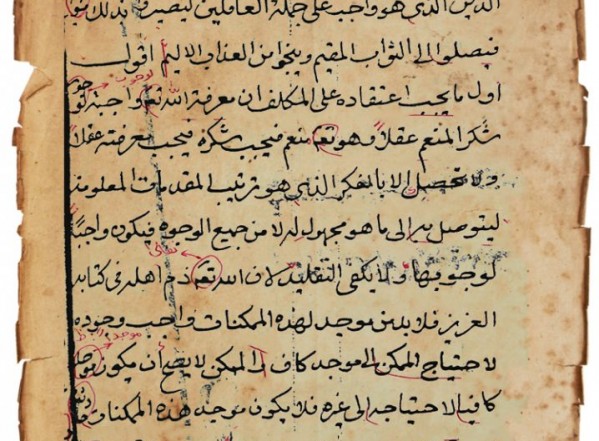 الدين الذي هو واجب على جملة العاقلين ليصيروا بذلك
فيصلوا الى الثواب المقيم وينجوا من العذاب الاليم اقول
اول ما يجب اعتقاده على المكلف ان معرفة الله تع واجبة
شكر المنعم عقلا وهو تع منعم فيجب شكره فيجب معرفته عقلا
ولا تحصل الا بالفكر الذي هو ترتيب المقدمات المعلومة
ليتوصل بها الى ما هو مجهول له لا من جميع الوجوه فيكون واجبا
لوجوبها ولا يكفى التقليد لان الله تع ذم اهله فى كتابه
العزيز فلا بد من موجد لهذه الممكنات واجب وجوده
لاحتياج الممكن الى موجد كاف الممكن لا يصح أن يكون
كافيا لاحتياجه الى غيره فلا يكون موجد هذه الممكنات